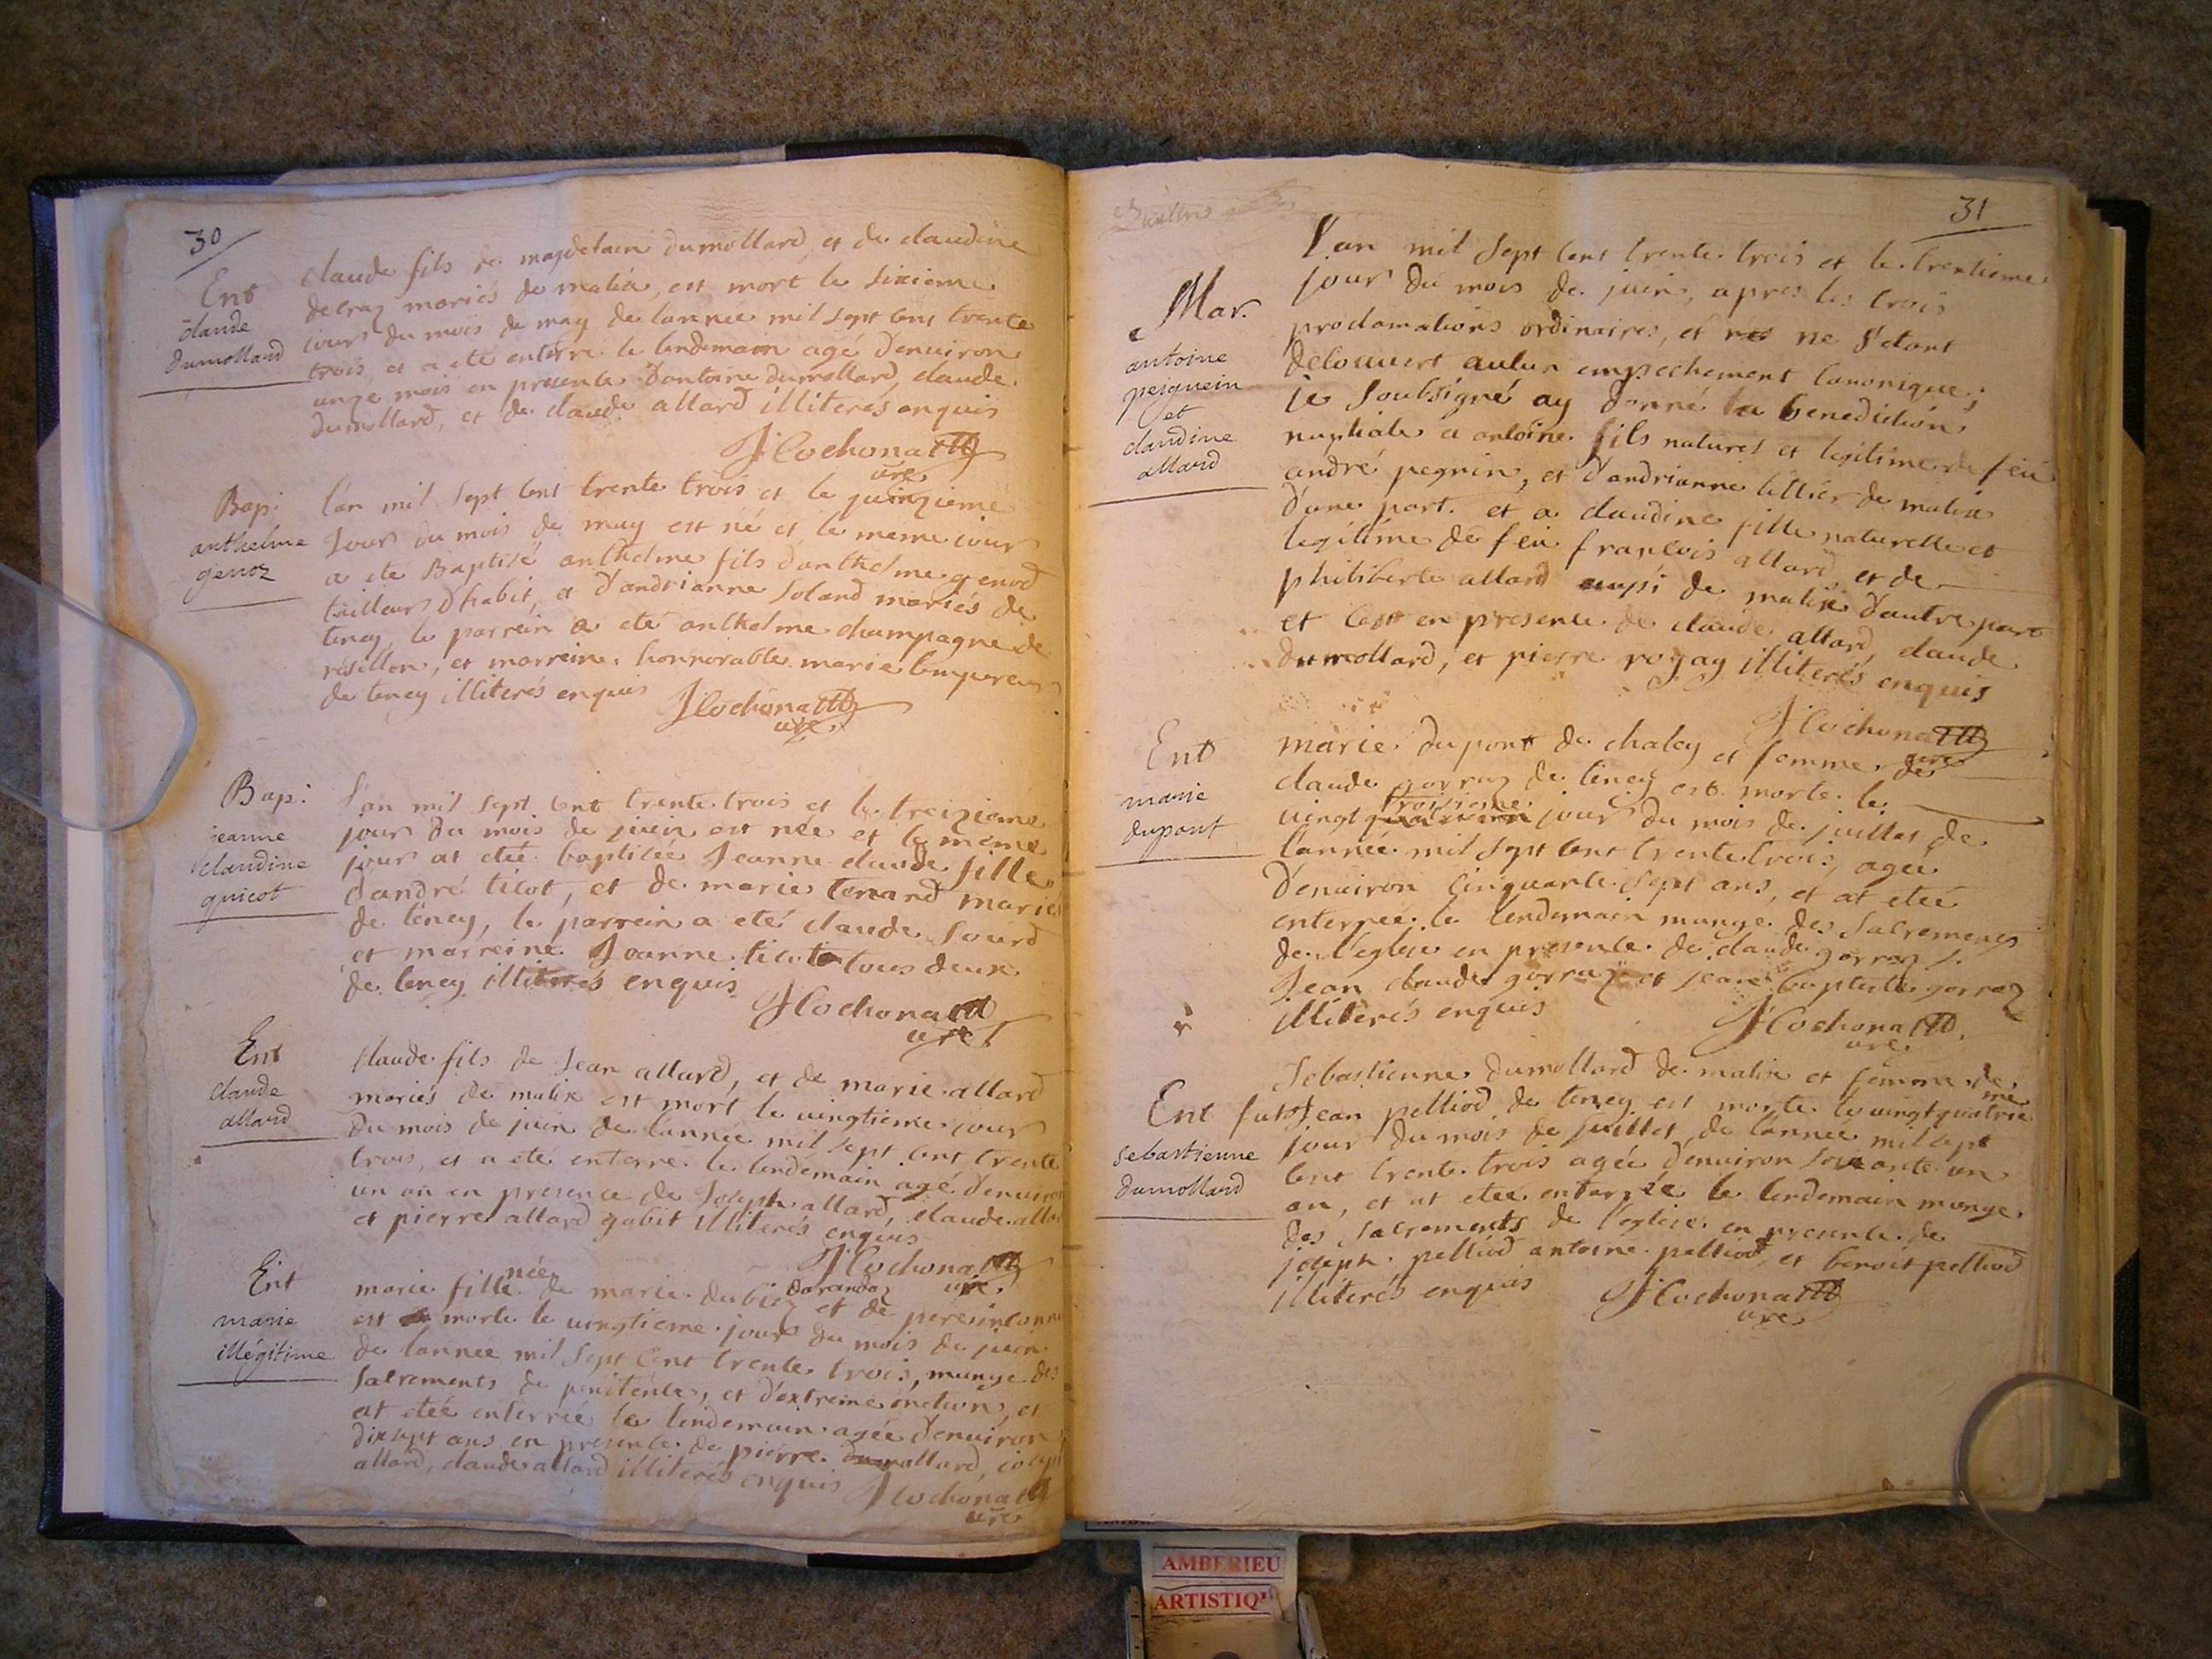 30
Ent
claude
dumollard
claude fils de magdelain dumollard, et de claudine
decraz mariés de malix, est mort le sixieme
iour du mois de may de lannee mil sept cent trente
trois, et a eté enterre le lendemain agé denuiron
unze mois en presence dantoine dumollard, claude
dumollard, et de claude allard illiterés enquis
J Cochonat
curé
Bap:
anthelme
genoz
l'an mil sept cent trente trois et le quinzieme
Jour du mois de may est né et le meme iour
a eté Baptisé anthelme fils danthelme genod
tailleur dhabit, et d'andrianne Soland mariés de
tenay, le parrein a eté anthelme champagne de
rosillon, et marreine honnorable marie lempereur
de tenay illiterés enquis
J Cochonat
curé
Bap:
jeanne
claudine
guicot
l'an mil sept cent trente trois et le treizieme
jour du mois de juin est née et le même
jour at etée baptisée Jeanne claude fille
dandré ticot, et de marie tenand mariés
de tenay, le parrein a eté claude Sourd
et marreine Jeanne ticot tous deux
de tenay illiterés enquis
J Cochonat
curé
Ent
claude
allard
claude fils de Jean allard, et de marie allard
mariés de malix est mort le uingtieme iour
du mois de juin de lannée mil sept cent trente
trois, et a eté enterre le lendemain agé denuiron
un an en presence de Joseph allard, claude allard
et pierre allard gubit illiterés enquis
J Cochonat
curé
Ent
marie
illégitime
marie fille née de marie dubiez et de pere inconnu
est morte le uingtieme jour du mois de juin
de lannée mil sept cent trente trois, munye des
sacrements de penitence, et d'extreme onction, et
at etée enterrée le lendemain agée denuiron
dixsept ans en presence de pierre dumollard, joseph
allard, claude allard illiterés enquis
J Cochonat
curé
31
Mar.
antoine
peignein
et
claudine
allard
l'an mil sept cent trente trois et le trentieme
jour du mois de juin, apres les trois
proclamations ordinaires, et ne s'etant
decouuert aucun empechement canonique;
je soubsigné ay donné la benediction
nuptiale a antoine fils naturel et legitime de feu
andré pegnin, et d'andrianne de malix
d'une part. et a claudine fille naturelle et
legitime de feu françois allard, et de
philiberte allard aussi de malix d'autre part
et c'est en presence de claude allard, claude
dumollard, et pierre rogay illiterés enquis
J Cochonat
curé
Ent
marie
dupont
marie dupont de chaley et femme de
claude gorraz de tenay est morte le
troisieme
uingt jour du mois de juillet de
lannée mil sept cent trente trois, agée
d'enuiron cinquante sept ans, et at etée
enterrée le lendemain munye des sacrements
de l'eglise en presence de claude gorraz
Jean claude gorraz et jean baptiste gorraz
illiterés enquis
J Cochonat
curé
Ent
sebastienne
dumollard
Sebastienne dumollard de malix et femme de
fut Jean pelliod de tenay est morte le uingt quatrieme
jour du mois de juillet de lannée mil sept
cent trente trois agée d'enuiron soixante un
an, et at etée enterrée le lendemain munye
des sacrements de l'eglise en presence de
joseph pelliod antoine pelliod, et benoit pelliod
illiterés enquis
J Cochonat
curé
AMBERIEU
ARTISTIQ'